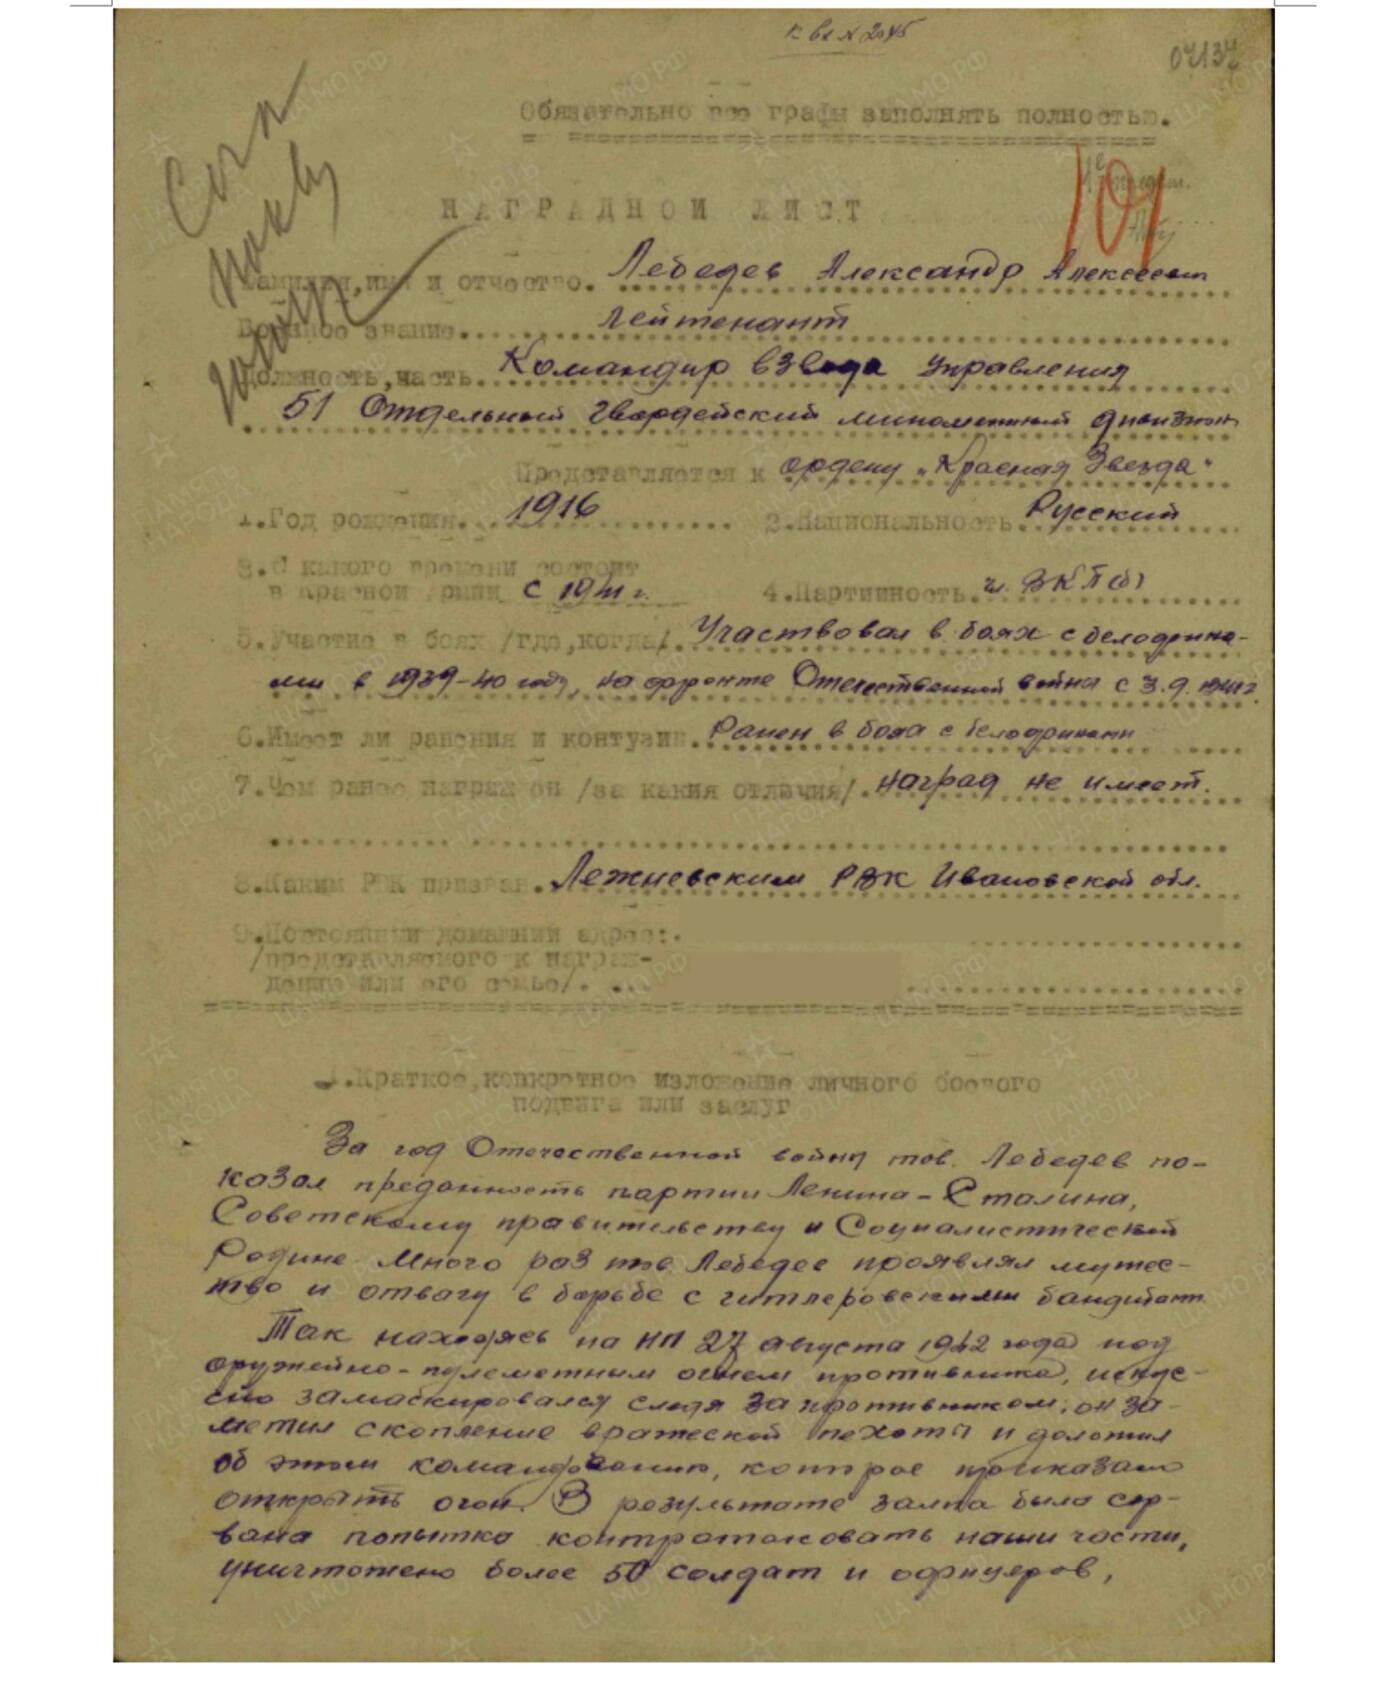 к вх № 2045
04137
Обязательно все графы заполнять полностью.
101
НАГРАДНОЙ ЛИСТ
Фамилия, имя и отчество. Лебедев Александр Алексеевич
Военное звание. лейтенант
Должность, часть. Командир взвода управления
51 Отдельный гвардейский минометный дивизион
Представляется к ордену „Красная Звезда"
1. Год рождения. 1916 2. Национальность Русский
3. С какого времени состоит
в Красной Армии с 1941 г. 4. Партийность. чл. ВКП(б)
5. Участие в боях /где, когда/. Участвовал в боях с белофинна-
ми в 1939-40 году, на фронте Отечественной война с 3.9.1941г.
6. Имеет ли ранения и контузии. Ранен в боях с белофинами
7. Чем ранее награжден /за какия отличия/. наград не имеет.
8. Каким РВК призван. Лежневским РВК Ивановской обл.
9. Постоянный домашний адрес:
/представляемого к награж-
дению или его семьс/.
1. Краткое, конкретное изложение личного боевого
подвига или заслуг
За год Отечественной войны тов. Лебедев по-
казал преданность партии Ленина - Сталина,
Советскому правительству и Социалистической
Родине. Много раз тов. Лебедев проявлял мужес-
тво и отвагу в борьбе с гитлеровскими бандитами
Так находясь на НП 27 августа 1942 года под
оружейно-пулеметным огнем противника, искус-
сно замаскировался следя за противником, он за-
метил скопление вражеской пехоты и доложил
об этом командованию, которое приказало
открыть огонь. В результате залпа была сор-
вана попытка контратаковать наши части,
уничтожено более 50 солдат и офицеров,